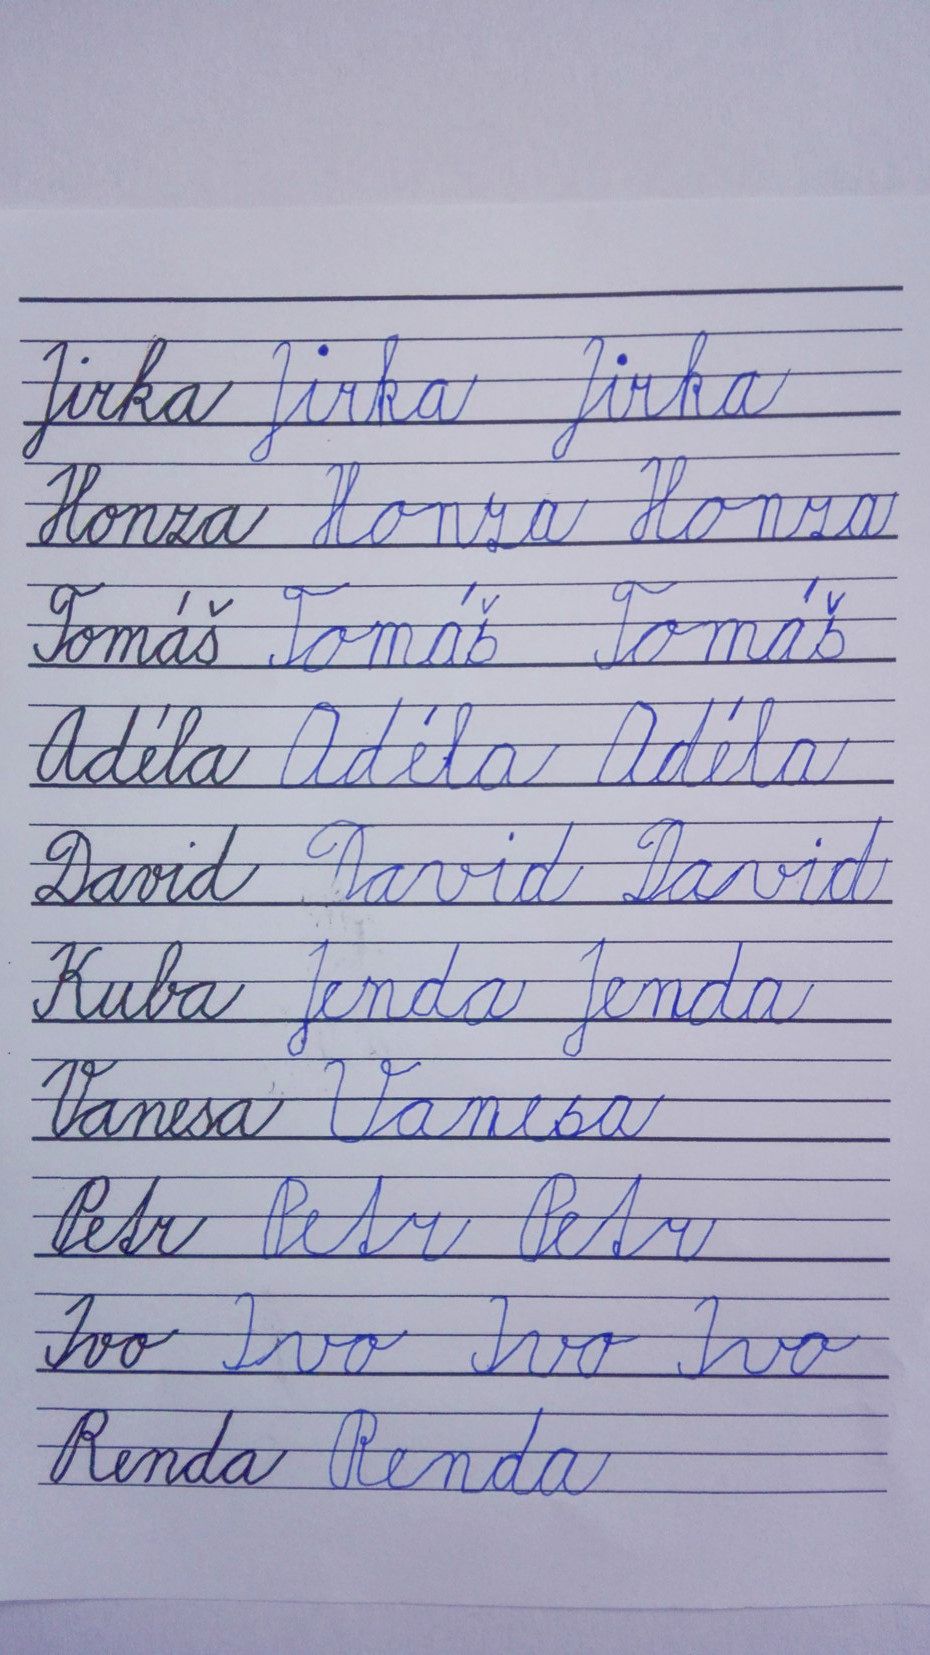 Jirka Jirka Jirka
Honza Honza Honza
Tomáš Tomáš Tomáš
Adéla Adéla Adéla
David David David
Kuba Jenda Jenda
Vanesa Vanesa
Petr Petr Petr
Ivo Ivo Ivo Ivo
Renda Renda